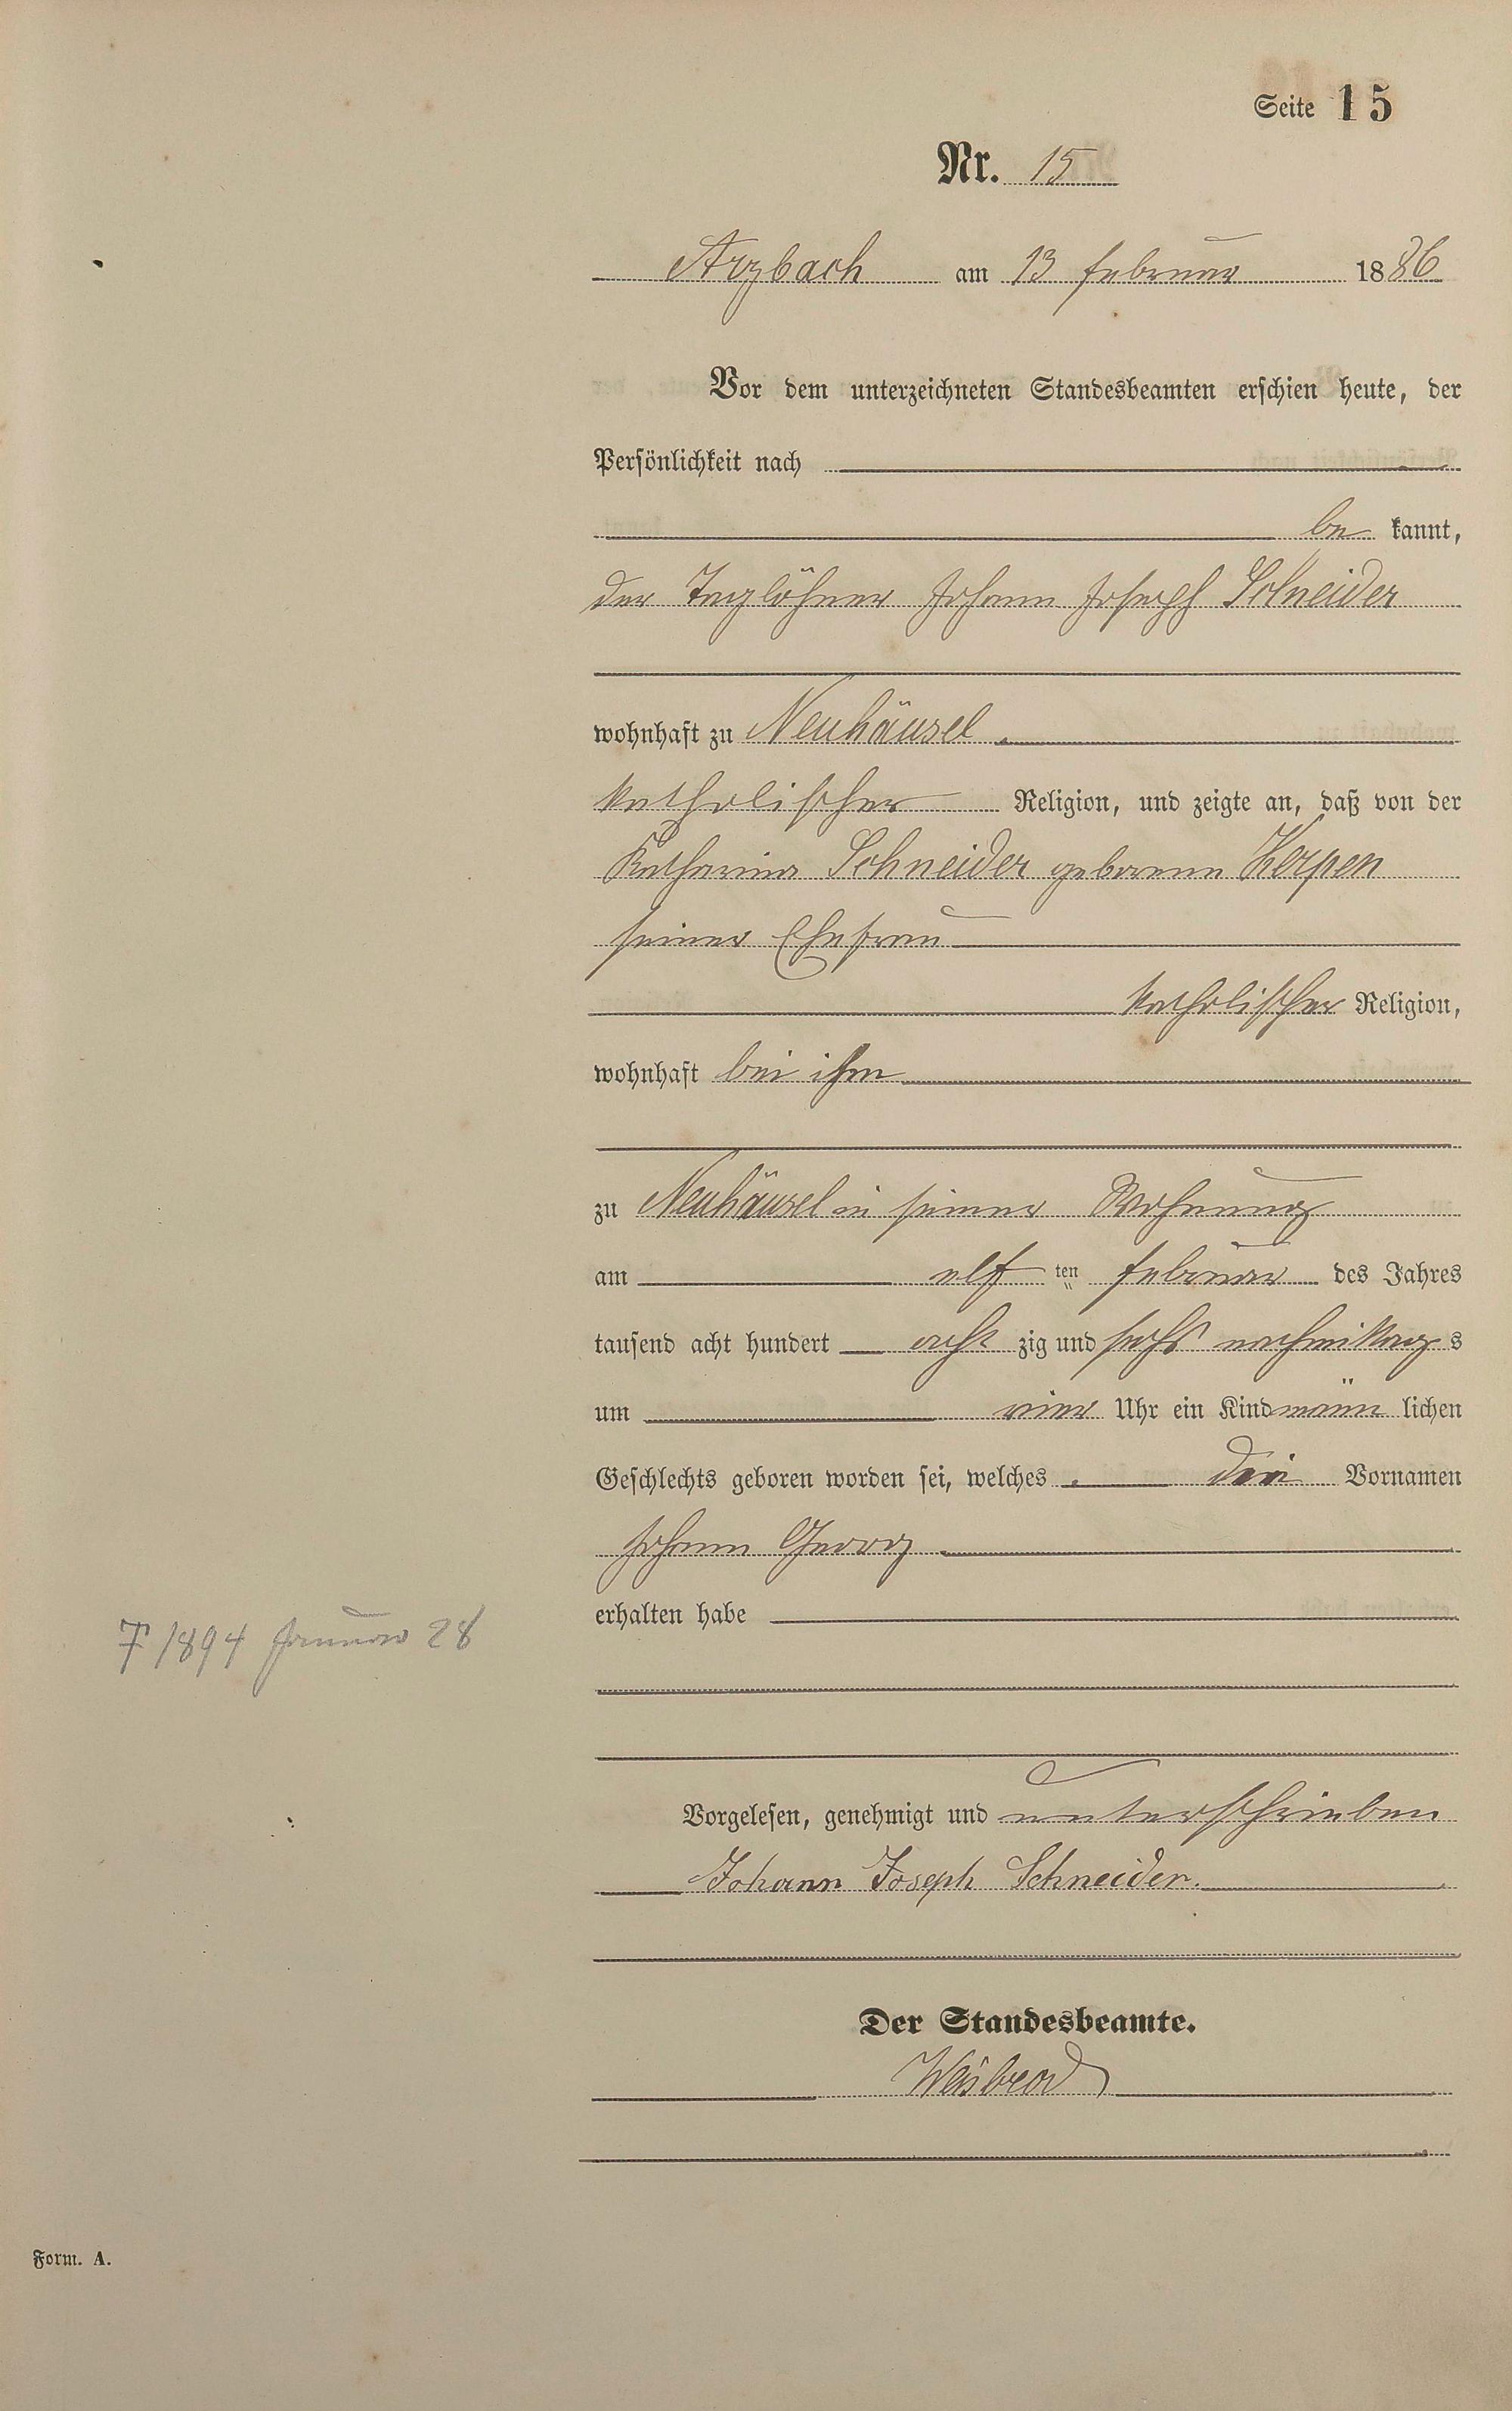 Seite 15
Nr. 15
Arzbach am 13 Februar 1886
Vor dem unterzeichneten Standesbeamten erschien heute, der
Persönlichkeit nach
be kannt,
der Taglöhner Johann Joseph Schneider
wohnhaft zu Neuhäusel
katholischer Religion, und zeigte an, daß von der
Katharina Schneider geborene Kerpen
seiner Ehefrau
katholischer Religion,
wohnhaft bei ihm
zu Neuhäusel in seiner Wohnung
am elf ten Februar des Jahres
tausend acht hundert acht zig und sechs nachmittags
um vier Uhr ein Kind männ lichen
Geschlechts geboren worden sei, welches die Vornamen
Johann Georg
erhalten habe
† 1894 Januar 28
Vorgelesen, genehmigt und unterschrieben
Johann Joseph Schneider.
Der Standesbeamte.
Form. A.